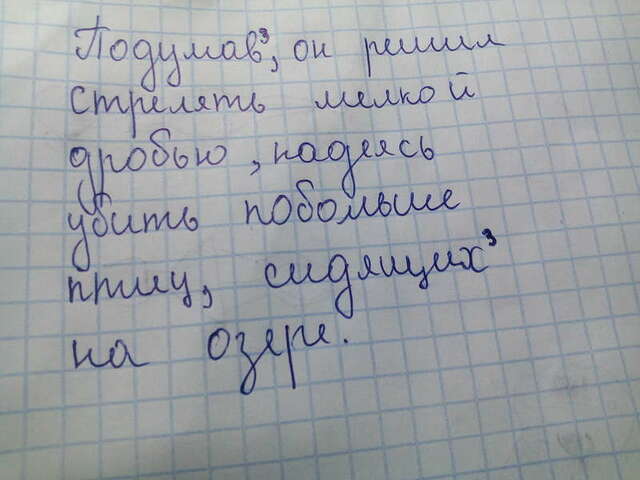 Подумав³, он решил
стрелять мелкой
дробью, надеясь
убить побольше
птиц, сидящих³
на озере.